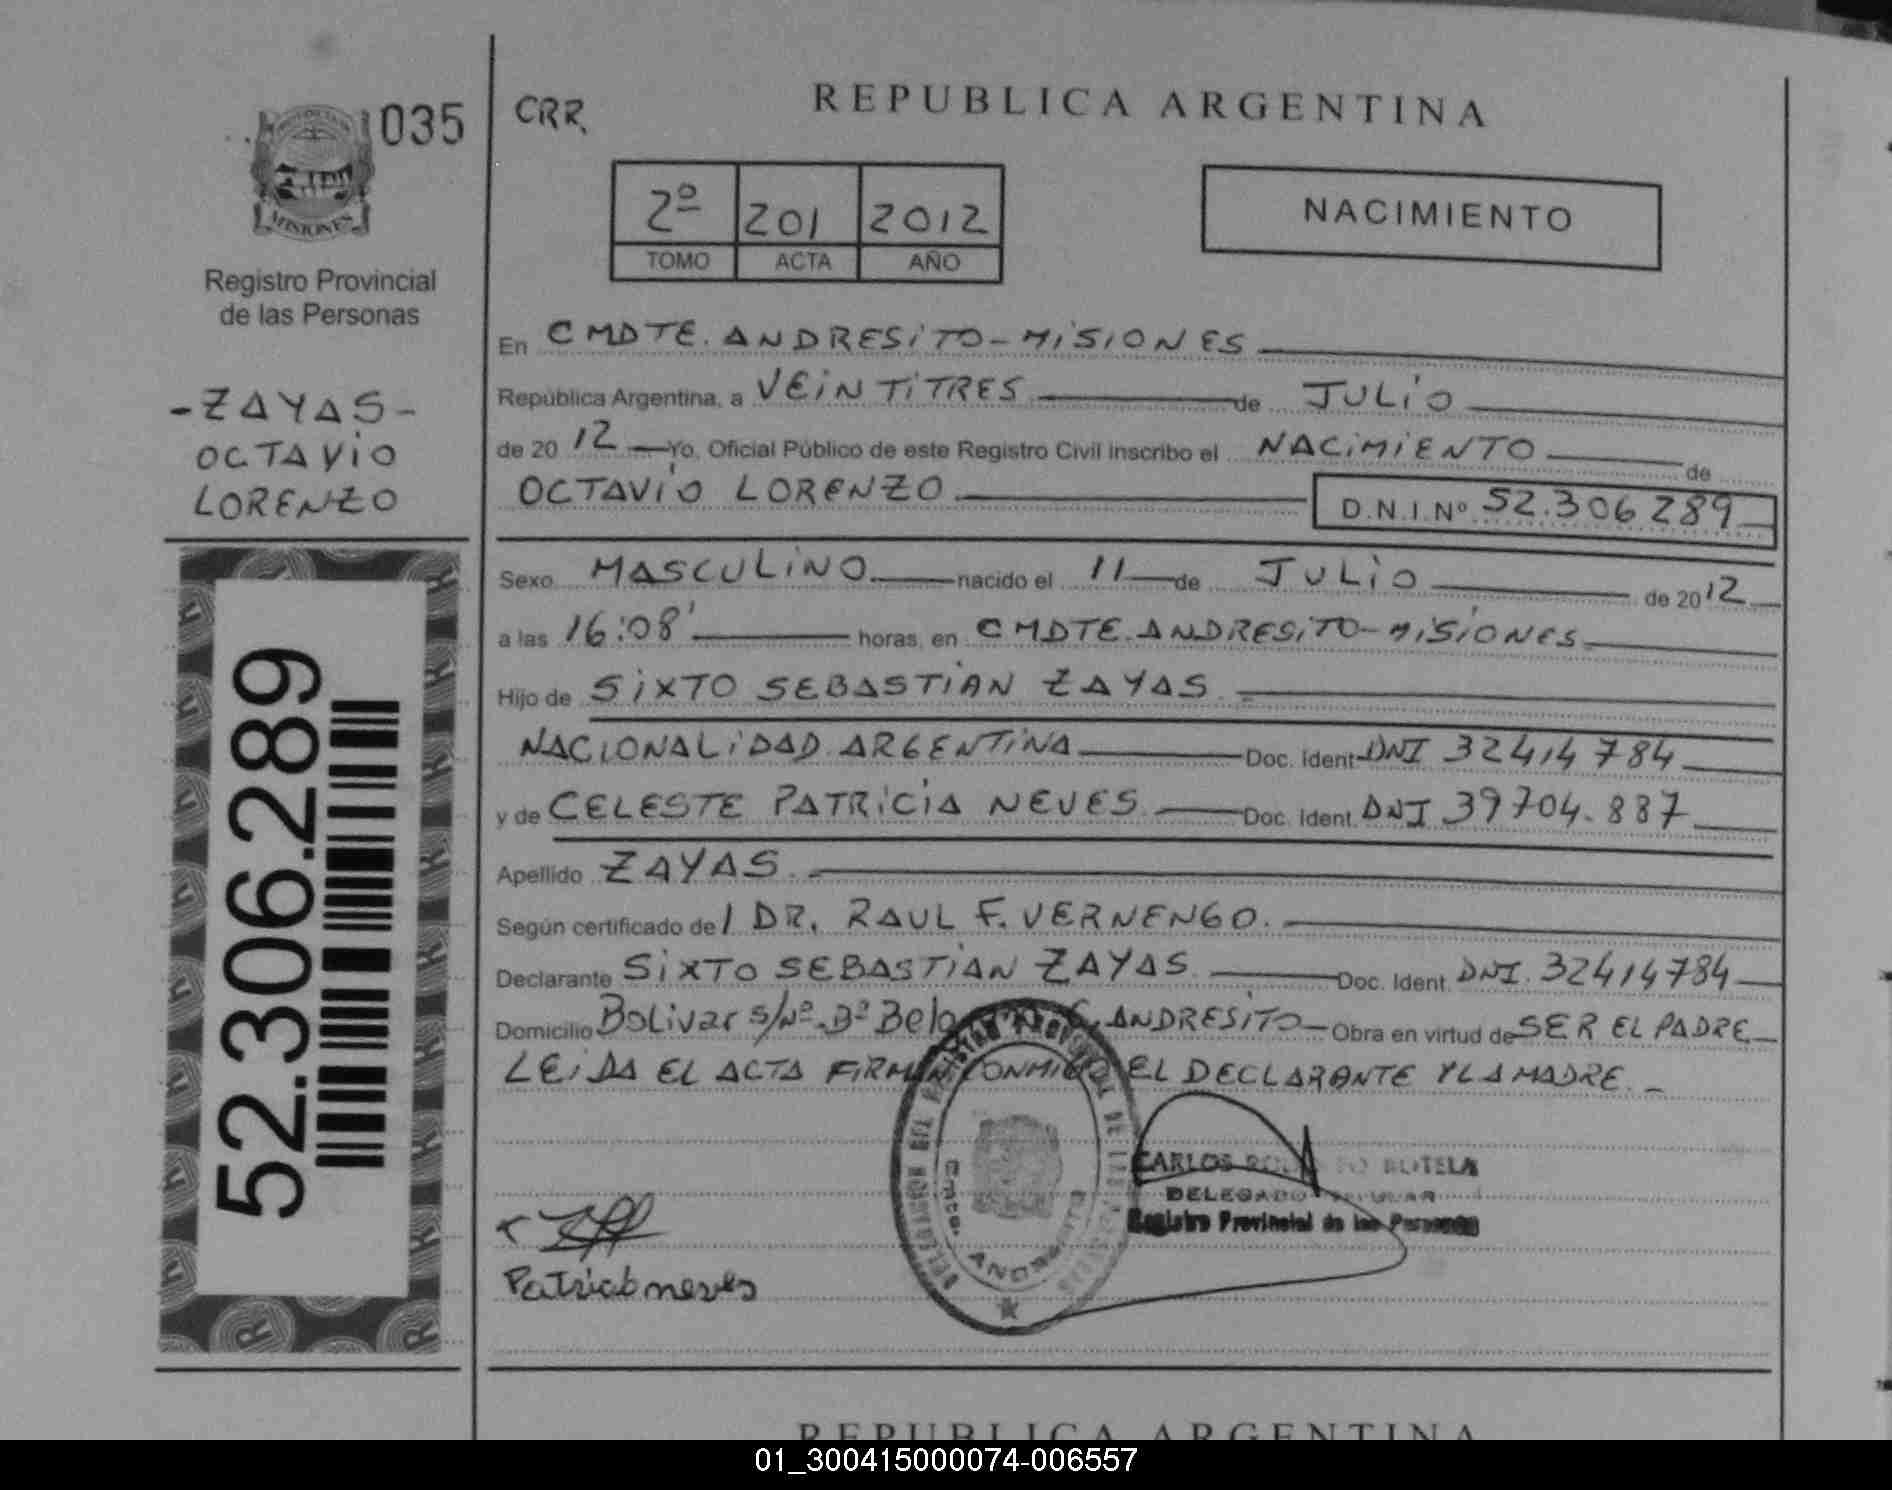 035
MISIONES
Registro Provincial
de las Personas
-ZAYAS-
OCTAVIO
LORENZO
52.306.289
CRR
REPUBLICA ARGENTINA
2º 201 2012
TOMO ACTA AÑO
NACIMIENTO
En CMDTE. ANDRESITO-MISIONES
República Argentina, a VEINTITRES de JULIO
de 2012 Yo, Oficial Público de este Registro Civil inscribo el NACIMIENTO de
OCTAVIO LORENZO D.N.I.Nº 52.306289
Sexo MASCULINO nacido el 11 de JULIO de 2012
a las 16:08' horas, en CMDTE. ANDRESITO-MISIONES
Hijo de SIXTO SEBASTIAN ZAYAS
NACIONALIDAD ARGENTINA Doc. Ident DNI 32414784
y de CELESTE PATRICIA NEVES Doc. Ident. DNI 39704.887
Apellido ZAYAS
Según certificado de / DR. RAUL F. VERNENGO.
Declarante SIXTO SEBASTIAN ZAYAS Doc. Ident. DNI. 32414784
Domicilio Bolivar s/Nº-Bº ANDRESITO- Obra en virtud de SER EL PADRE
LEIDA EL ACTA CONMIGO EL DECLARANTE Y LA MADRE.-
CARLOS BOTELA
DELEGADO TITULAR
Registro Provincial de las Personas
Cmdte. ANDRESITO
REPUBLICA ARGENTINA
01_300415000074-006557